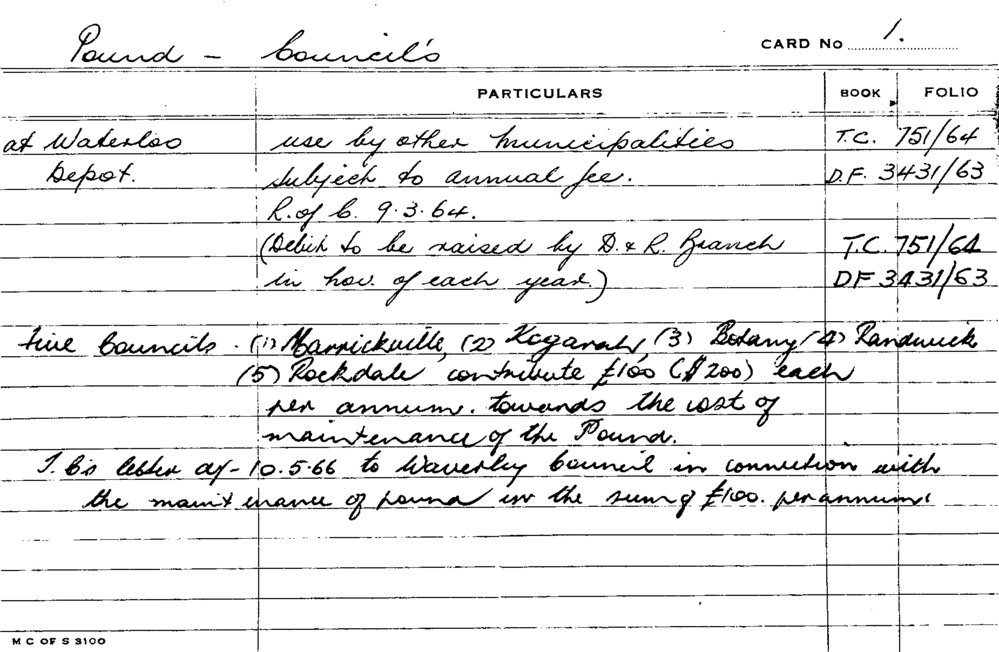 Pound - Council's CARD No 1.
PARTICULARS BOOK FOLIO
at Waterloo use by other Municipalities T.C. 751/64
Depot. subject to annual fee. D.F. 3431/63
R. of C. 9.3.64.
(Debit to be raised by D. & R. Branch T.C. 751/64
in Nov. of each year.) DF 3431/63
Five Councils. (1) Marrickville, (2) Kogarah, (3) Botany (4) Randwick
(5) Rockdale contribute £100 ($200) each
per annum. towards the cost of
maintenance of the Pound.
T. C's letter of - 10.5.66 to Waverley Council in connection with
the maintenance of pound in the sum of £100. per annum.
M C OF S 3100